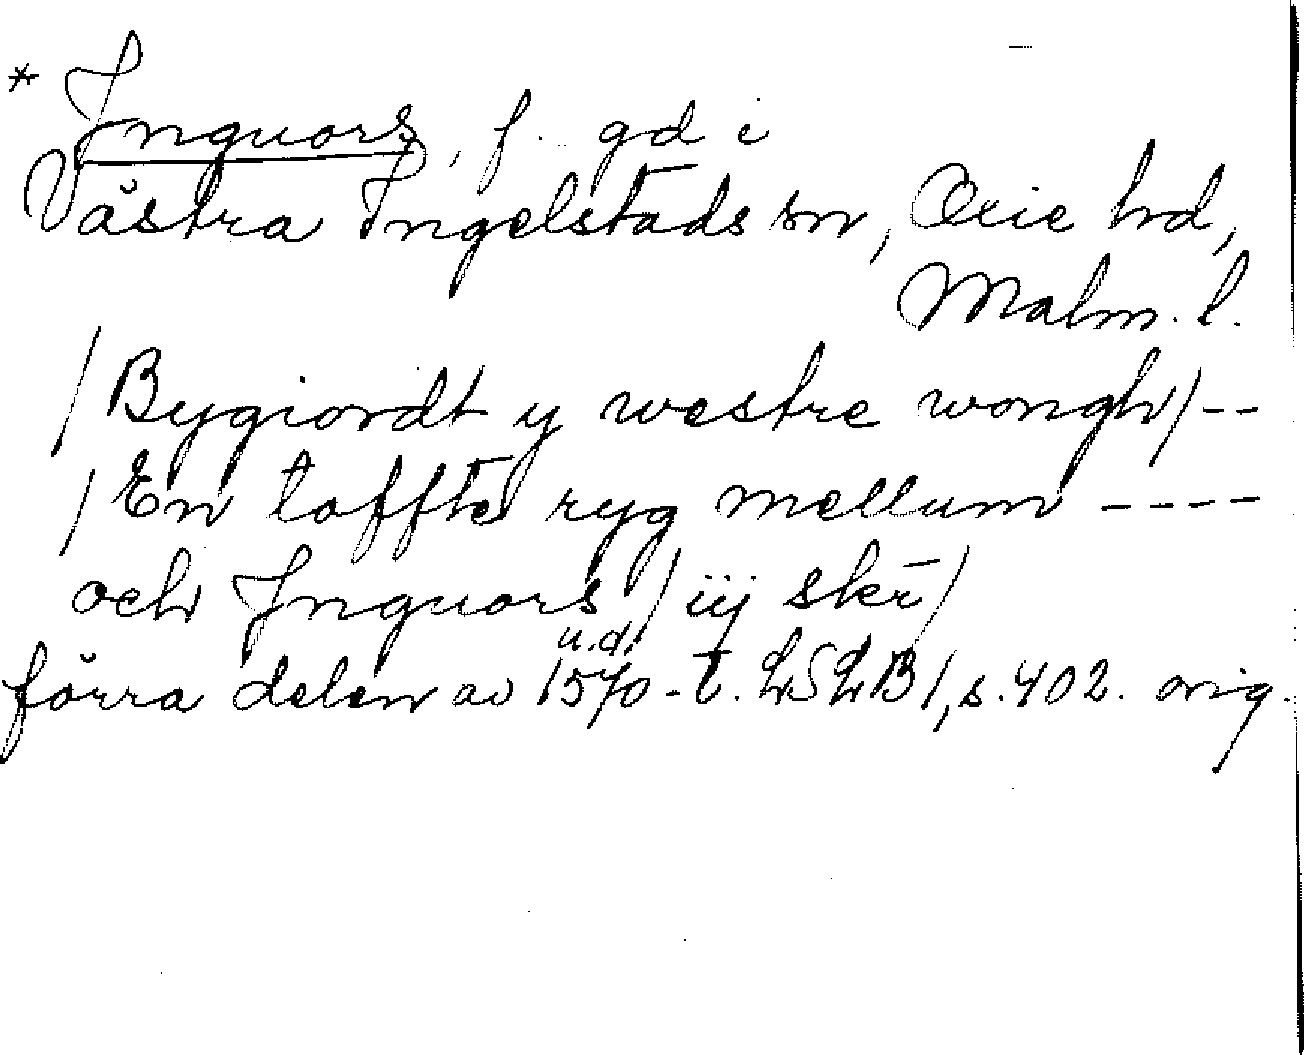 * Jnguors, f. gd i
Västra Ingelstads sn, Oxie hd,
Malm. l.
/Bygiordt y westre wongh/--
/En toffte ryg mellum ----
och Jnguors / iij skr̄/
u.d.
förra delen av 1570-t. LSLB 1, s. 402. orig.